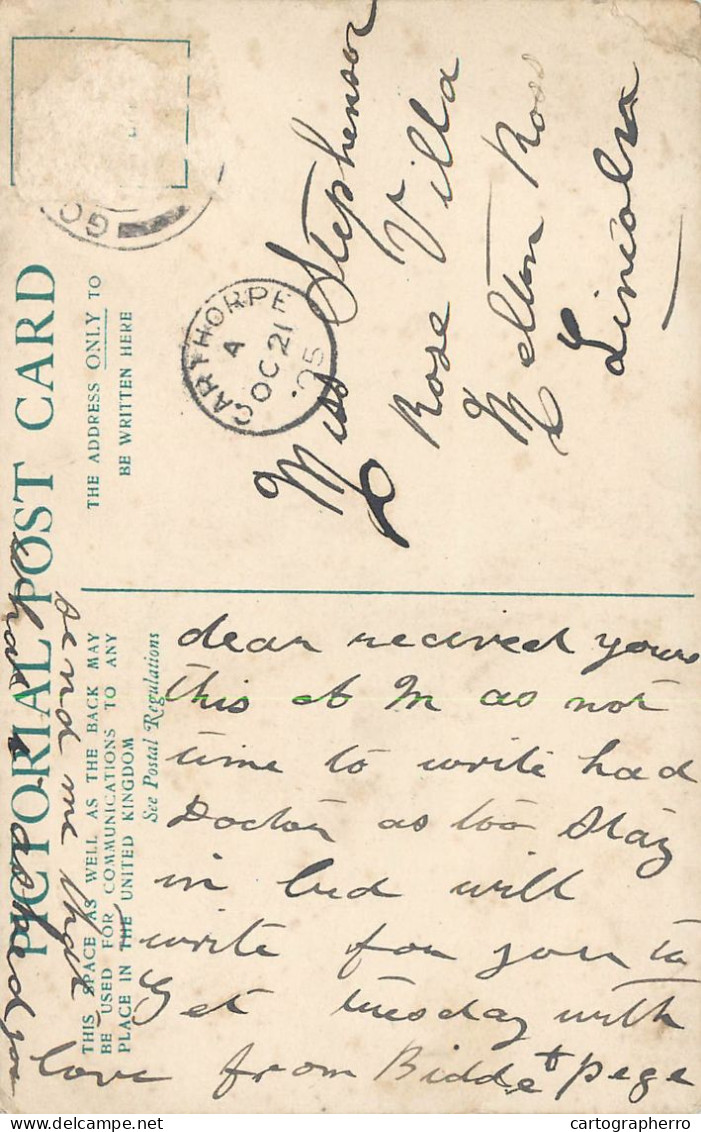 PICTORIAL POST CARD
THIS SPACE AS WELL AS THE BACK MAY
BE USED FOR COMMUNICATIONS TO ANY
PLACE IN THE UNITED KINGDOM
See Postal Regulations
THE ADDRESS ONLY TO
BE WRITTEN HERE
GO
CARTHORPE
A
OC 21
05
Miss Stephenson
Rose Villa
Melton Ross
Lincoln
dear received yours
this at M as not
time to write had
Doctor as too stay
in bed will
write for you to
Get tuesday with
love from Bidde + pege
send me that
what I asked you
cartographerro